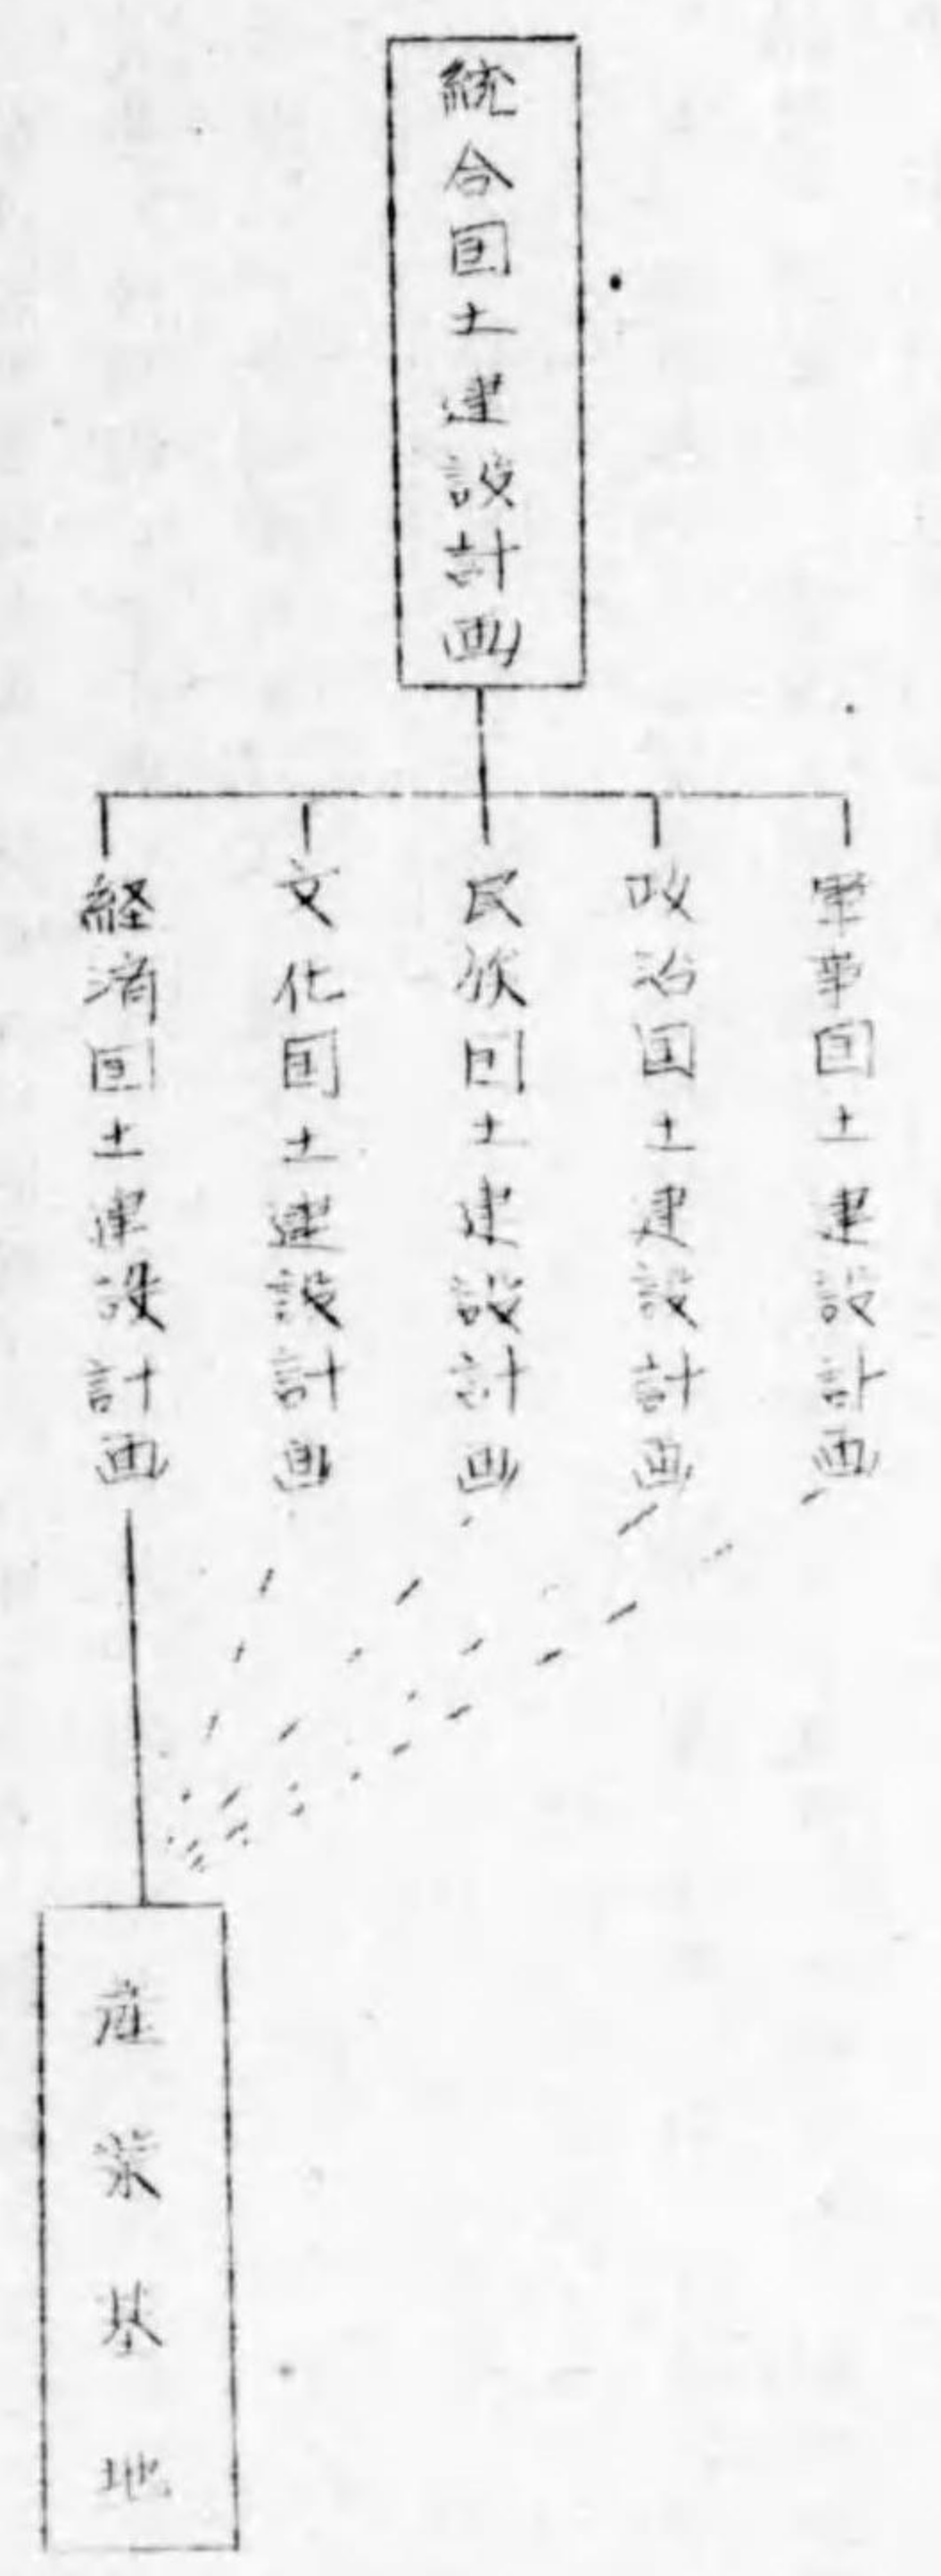 統合国土建設計画
軍事国土建設計画
政治国土建設計画
民族国土建設計画
文化国土建設計画
経済国土建設計画
産業基地